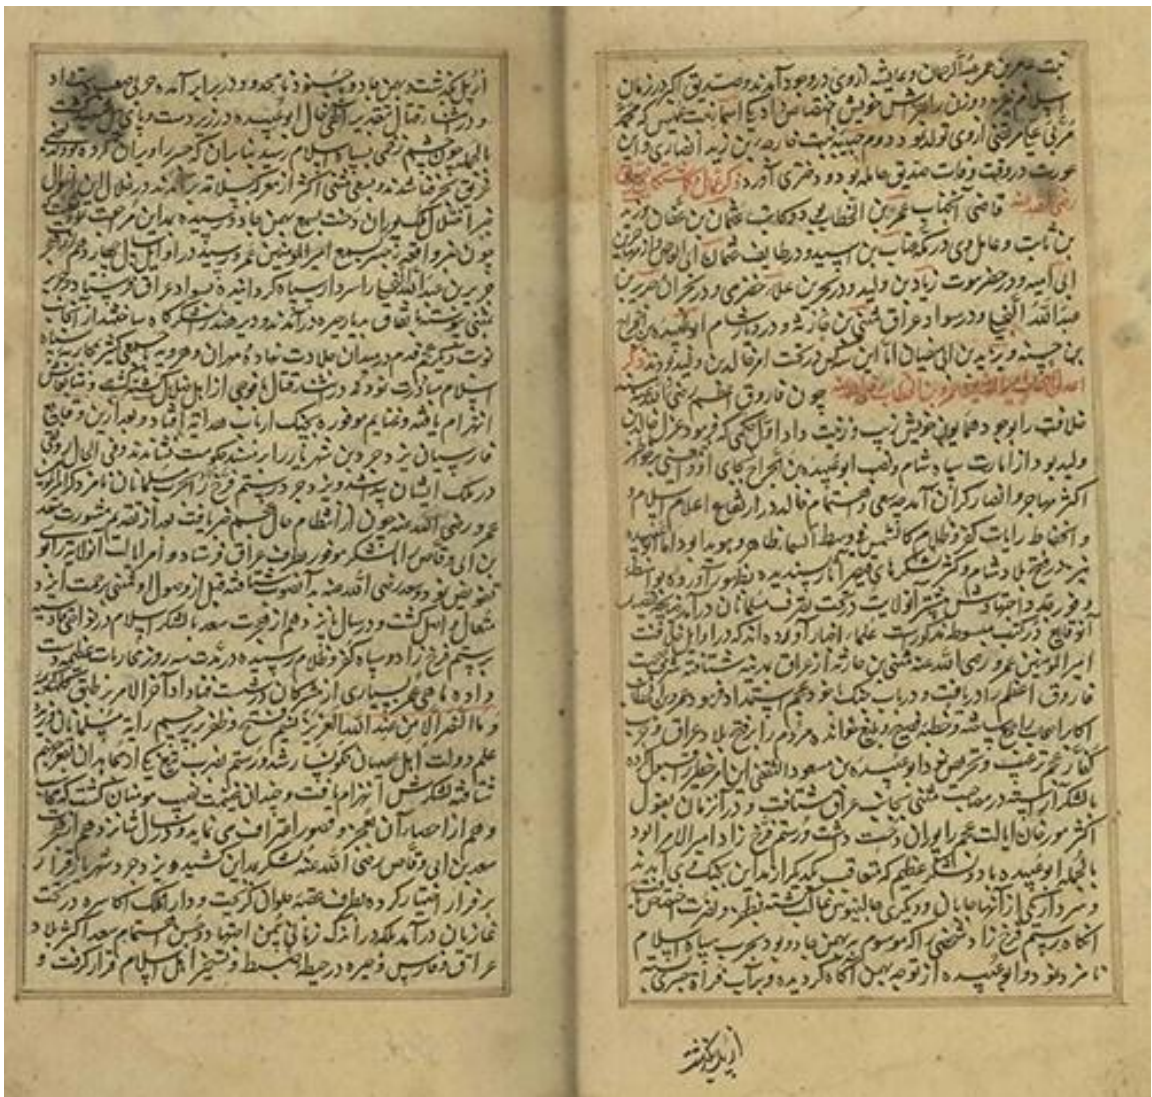 بنت عامر بن عمر عبدالرحمان و عایشه از وی در وجود آمدند و صدیق اکبر در زمان
اسلام نیز دو زن را بفراش خویش اختصاص داد یکی اسما بنت عمیس که محمد
از وی تولد نمود دوم حبیبه بنت خارجه بن زید انصاری و این
عورت در وقت وفات صدیق حامله بود و دختری آورد ذکر
رضی الله عنه قاضی آنجناب عمر بن الخطاب بود و کاتب عثمان بن عفان و زید
بن ثابت و عامل وی در مکه عتاب بن اسید و در طایف عثمان ابی العاص
ابی امیه و در حضرموت زیاد بن ولید و در بحرین علاء حضرمی و در نجران جریر بن
عبدالله البجلی و در سواد عراق مثنی بن حارثه و در دیار شام ابو عبیده بن الجراح
بن حسنه و یزید بن ابی سفیان اما این سه کس در تحت امر خالد بن ولید بودند ذکر
چون فاروق اعظم رضی الله عنه مسند
خلافت را بوجود همایون خویش زیب و زینت داد اول حکمی که فرمود عزل خالد بن
ولید بود از امارت سپاه شام و نصب ابو عبیده بن الجراح بجای او و این معنی بر خاطر
اکثر مهاجر و انصار گران آمد چه سعی و اهتمام خالد در ارتفاع اعلام اسلام
و انخفاض رایات کفر و ظلام کالشمس فی وسط السماء ظاهر و هویدا بود اما ابو عبیده
نیز در فتح بلاد شام و کسر لشکرهای قیصر آثار پسندیده بظهور آورده بواسطه
وفور جد و اجتهادش بیشتر آن ولایت در تحت تصرف مسلمانان درآمد
آن وقایع در کتب مبسوطه مذکورست علماء اخبار آورده‌اند که در اوایل خلافت
امیرالمومنین عمر رضی الله عنه مثنی بن حارثه از عراق بمدینه شتافته شرف صحبت
فاروق اعظم را دریافت و در باب جنگ عجم استمداد نمود و عمر بن خطاب
اکابر اصحاب را جمع ساخته و خطبه فصیح و بلیغ خوانده مردم را بفتح بلاد عراق و حرب
کفار عجم ترغیب و تحریص نمود ابو عبیده بن مسعود الثقفی این امر خطیر را قبول کرده
با لشکر آراسته در مصاحبت مثنی بجانب عراق شتافت و در آن زمان بقول
اکثر مورخان ایالت عجم را پوران دخت داشت و رستم فرخ زاد امیرالامرا بود
بالجمله ابو عبیده با دو لشکر عظیم که متعاقب یکدیگر از مداین بجنگ وی آمدند
و سردار یکی از آنها جابان و دیگری جالینوس مقاتله نموده بظفر و نصرت اختصاص یافت
آنگاه رستم فرخ زاد شخصی را که موسوم به بهمن جادو بود بحرب سپاه اسلام
نامزد نمود و ابو عبیده از توجه بهمن آگاه گردیده و بر آب فراة جسری بسته
از پل بگذشت
از پل بگذشت و بهمن جادو با جنود نامعدود در برابر آمده حربی صعب دست داد
و در اثناء قتال بتقدیر ابو عبیده در زیر دست و پای فیل
بالجمله چون چشم زخمی بسپاه اسلام رسید بنابران که جسر را ویران کرده بودند
فریقی بحر فنا شدند و بسعی مثنی اکثر از معرکه بسلامت برآمدند در خلال این احوال
خبر اختلال ملک پوران دخت بسمع بهمن جادو رسیده بمداین مراجعت نمود
چون خبر واقعه جسر بسمع امیرالمومنین عمر رسید در اوایل سال چهاردهم از هجرت
جریر بن عبدالله البجلی را سردار سپاه گردانیده بسواد عراق فرستاد و جریر
بمثنی پیوسته باتفاق بدیار حیره درآمدند و دیر هند را لشکرگاه ساختند از آنجانب
نوبت دیگر عجم قدم در میدان جلادت نهاده مهران
اسلام مبادرت نمودند در اثناء قتال فوجی از اهل ضلال کشته گشتند
انهزام یافته و غنایم موفوره بچنگ ارباب هدایت افتاد و بعد ازین وقایع
فارسیان یزدجرد بن شهریار را بر مسند حکومت نشاندند و فی الحال رونقی
در ملک ایشان پیدا شد و یزدجرد رستم فرخ زاد را بحرب مسلمانان نامزد کرد
عمر رضی الله عنه چون از انتظام حال عجم خبر یافت بعد از تقدیم مشورت سعد
بن ابی وقاص را با لشکر موفور بطرف عراق فرستاد و امر ایالت آن ولایت را بدو
تفویض نمود و سعد رضی الله عنه بدانصوب شتافته قبل از وصول او مثنی برحمت ایزد
متعال واصل گشت و در سال پانزدهم از هجرت سعد با لشکر اسلام در نواحی قادسیه
برستم فرخ زاد و سپاه کفر و ظلام رسیده در مدت سه روز محاربات عظیمه دست
داده جمعی بسیاری از مشرکان بدشت فنا افتاد آخرالامر بر طبق
و ما النصر الا من عند الله العزیز نسیم فتح و ظفر بر پرچم رایه مسلمانان وزید
علم دولت اهل عصیان نگونسار شد و رستم بضرب تیغ یکی از مجاهدان بقعر جهنم
شتافته لشکرش انهزام یافت و چندان غنیمت نصیب مومنان گشت که
وهم از احصار آن بعجز و قصور اعتراف می نماید و در سال شانزدهم از هجرت
سعد بن ابی وقاص رضی الله عنه لشکر بمداین کشیده یزدجرد شهریار فرار
بر قرار اختیار کرده بطرف حلوان گریخت و دارالملک اکاسره در تحت
غازیان درآمد بلکه در اندک زمانی بیمن اجتهاد و حسن اهتمام سعد اکثر بلاد
عراق و فارس و غیره در حیطه ضبط و تسخیر اهل اسلام قرار گرفت و